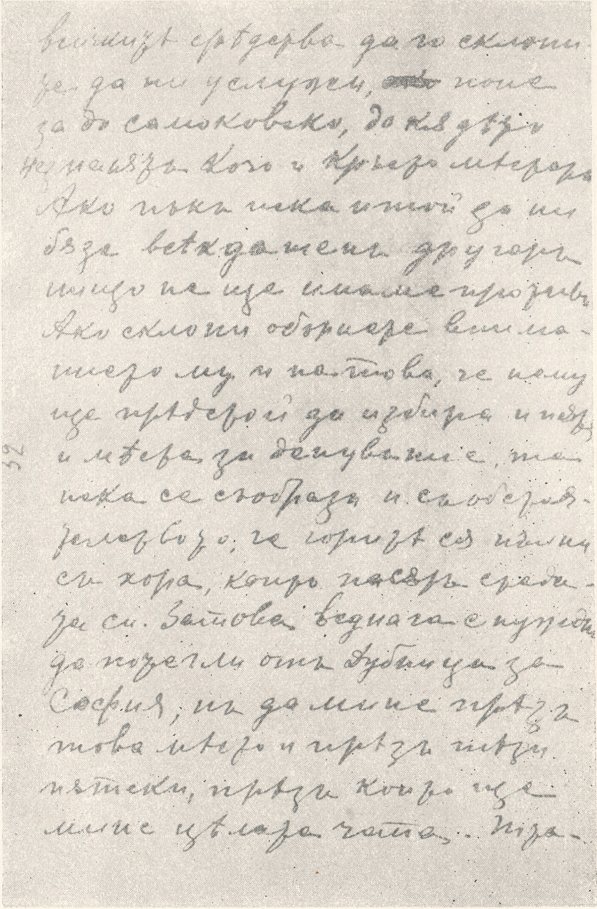 всичкитѣ срѣдства да го склони-
те да ни услужи, поне
за до самоковско, до кядѣто
познавятъ Кочо и Кръсто мѣстата
Ако пъкъ иска и той да ни
бяде всѣкдашенъ другарь
нищо не ще имаме противъ
Ако склони обърнете внима-
нието му и на това, че нему
ще прѣдстой да избира и пятя
и мѣста за денувание, та
нека се съобрази и съ обстоя-
телството, че горитѣ ся пълни
съ хора, които косятъ сѣната-
та си. Затова веднага е нуждно
да потегли отъ Дубница за
София, нъ да мине прѣзъ
това мѣсто и прѣзъ тѣзи
пятеки, прѣзъ които ще
мине цѣлата чета. Тря-
52